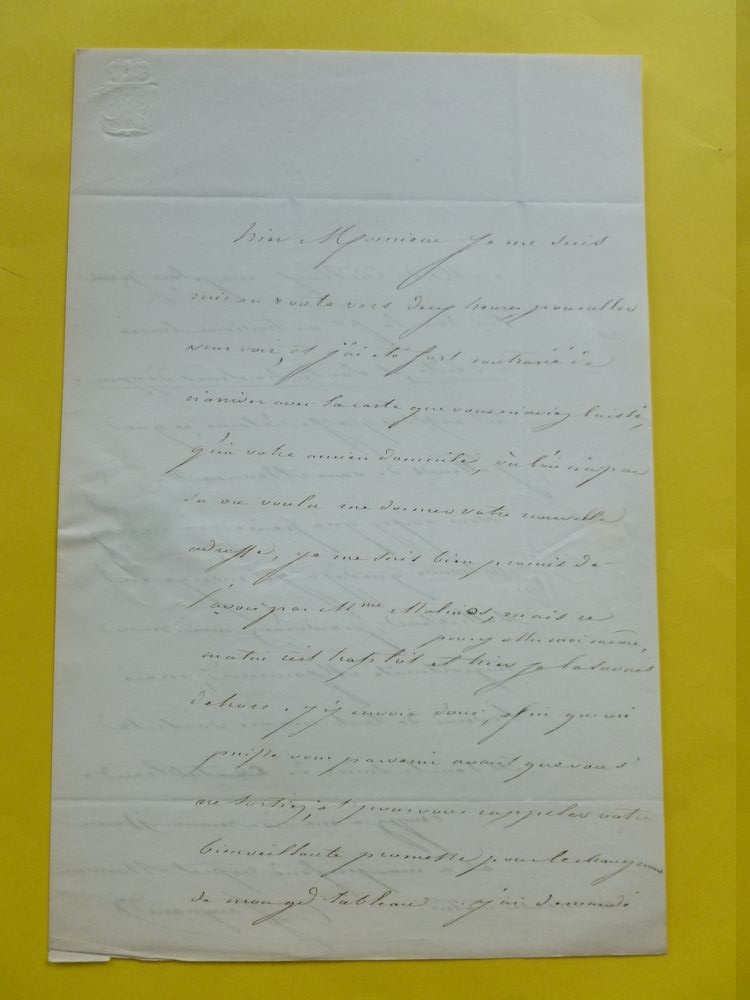 hier Monsieur je me suis
mis en route vers deux heures pour aller
vous voir, et j'ai été fort contrarié de
n'arriver avec la carte que vous m'aviez laissé,
qu'à votre ancien domicile, où l'on n'a pas
su ou voulu me donner votre nouvelle
adresse, je me suis bien promis de
l'avoir par Mme mais ce
pour y aller moi même,
matin c'est trop tôt et hier je la savais
dehors. j'y envoie donc, afin que ceci
puisse vous parvenir avant que vous
ne sortiez, et pour vous rappeler votre
bienveillante promesse pour le changement
de mon gd tableau. j'ai demandé